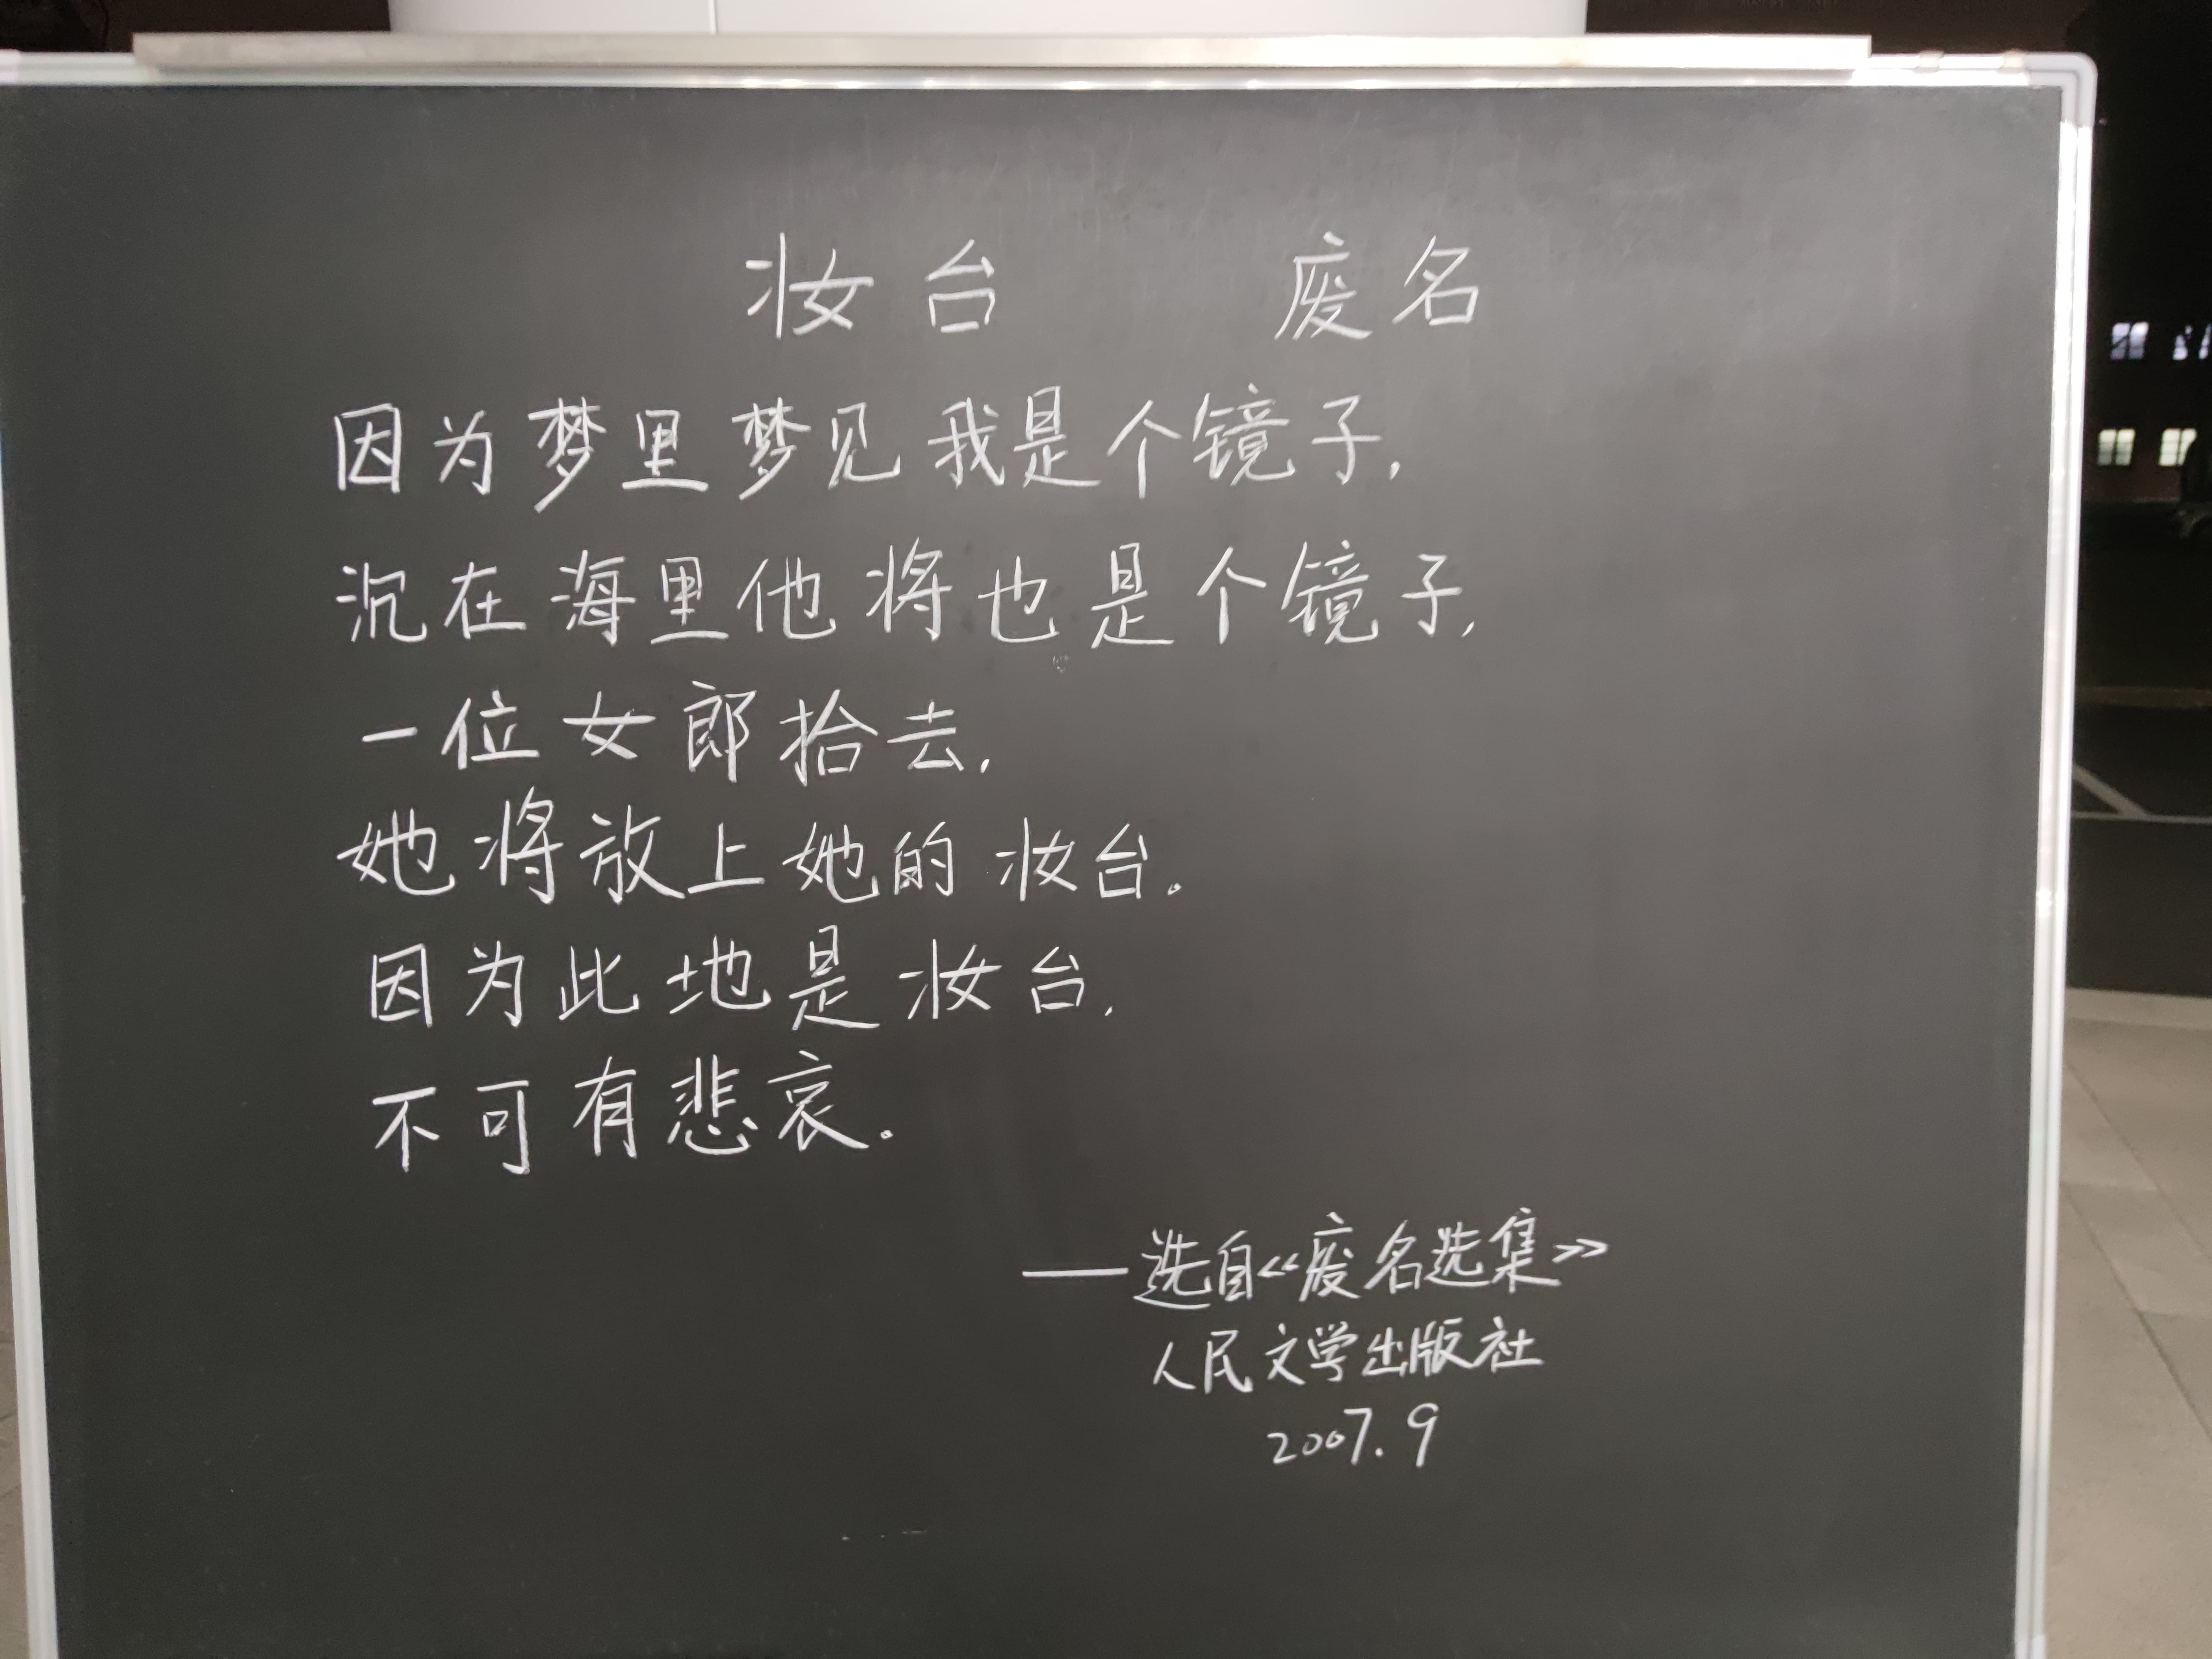 妆台 废名
因为梦里梦见我是个镜子,
沉在海里他将也是个镜子,
一位女郎拾去,
她将放上她的妆台。
因为此地是妆台,
不可有悲哀。
——选自《废名选集》
人民文学出版社
2007.9